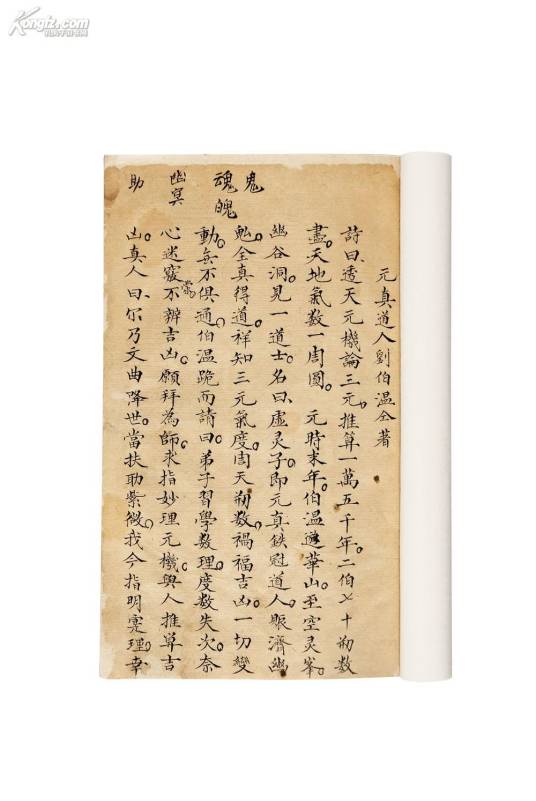 Kongfz.com
鬼
魂魄
幽冥
助
元真道人劉伯温仝著
詩曰、透天元機論三元。推算一萬五千年。二伯七十朔数
盡。天地氣数一周圓。 元時末年。伯温遊華山。至空灵峯。
幽谷洞。見一道士。名曰、虛灵子。即元真鉄冠道人。賑濟幽
全真得道。祥知三元氣度。周天朔数。禍福吉凶。一切變
動。無不俱通。伯温跪而請曰。弟子習學数理。度数失次。奈
心迷竅。常不辨吉凶。願拜為師。求指妙理元機。與人推草吉
凶。真人曰、尔乃文曲降世。當扶助紫微。我今指明寔理。幸